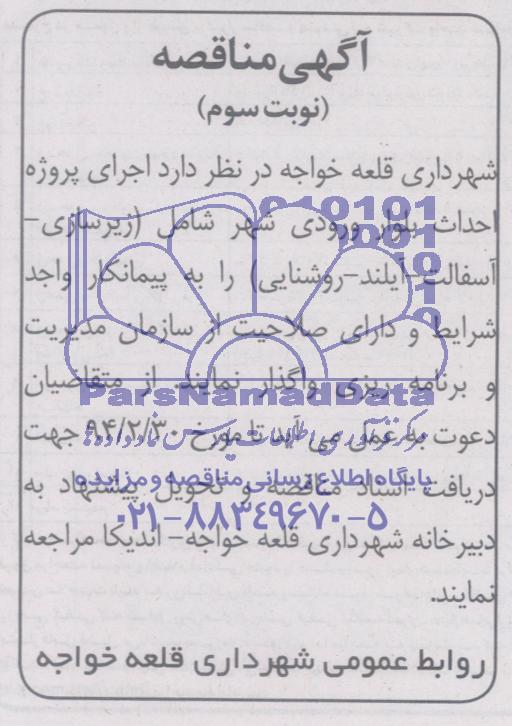 آگهی مناقصه
(نوبت سوم)
شهرداری قلعه خواجه در نظر دارد اجرای پروژه
احداث بلوار ورودی شهر شامل (زیرسازی-
آسفالت-آیلند-روشنایی) را به پیمانکار واجد
شرایط و دارای صلاحیت از سازمان مدیریت
و برنامه ریزی واگذار نمایند. از متقاضیان
دعوت به عمل می آید تا مورخ ۹۴/۲/۳۰ جهت
دریافت اسناد مناقصه و تحویل پیشنهاد به
دبیرخانه شهرداری قلعه خواجه- اندیکا مراجعه
نمایند.
روابط عمومی شهرداری قلعه خواجه
ParsNamadData
مرکز فرآوری اطلاعات پارس نماد داده ها
پایگاه اطلاع رسانی مناقصه و مزایده
۰۲۱-۸۸۳۴۹۶۷۰-۵